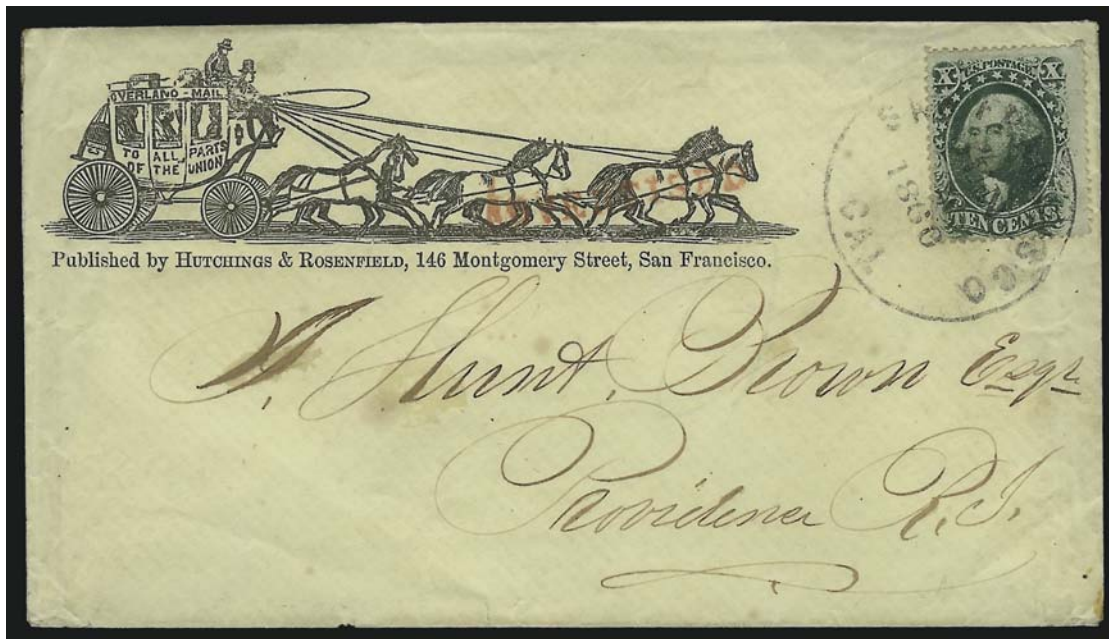 OVERLAND-MAIL
TO ALL PARTS
OF THE UNION
Published by HUTCHINGS & ROSENFIELD, 146 Montgomery Street, San Francisco.
X U.S. POSTAGE. X
TEN CENTS
1860
CAL
Hunt Brown Esqr
Providence R.I.